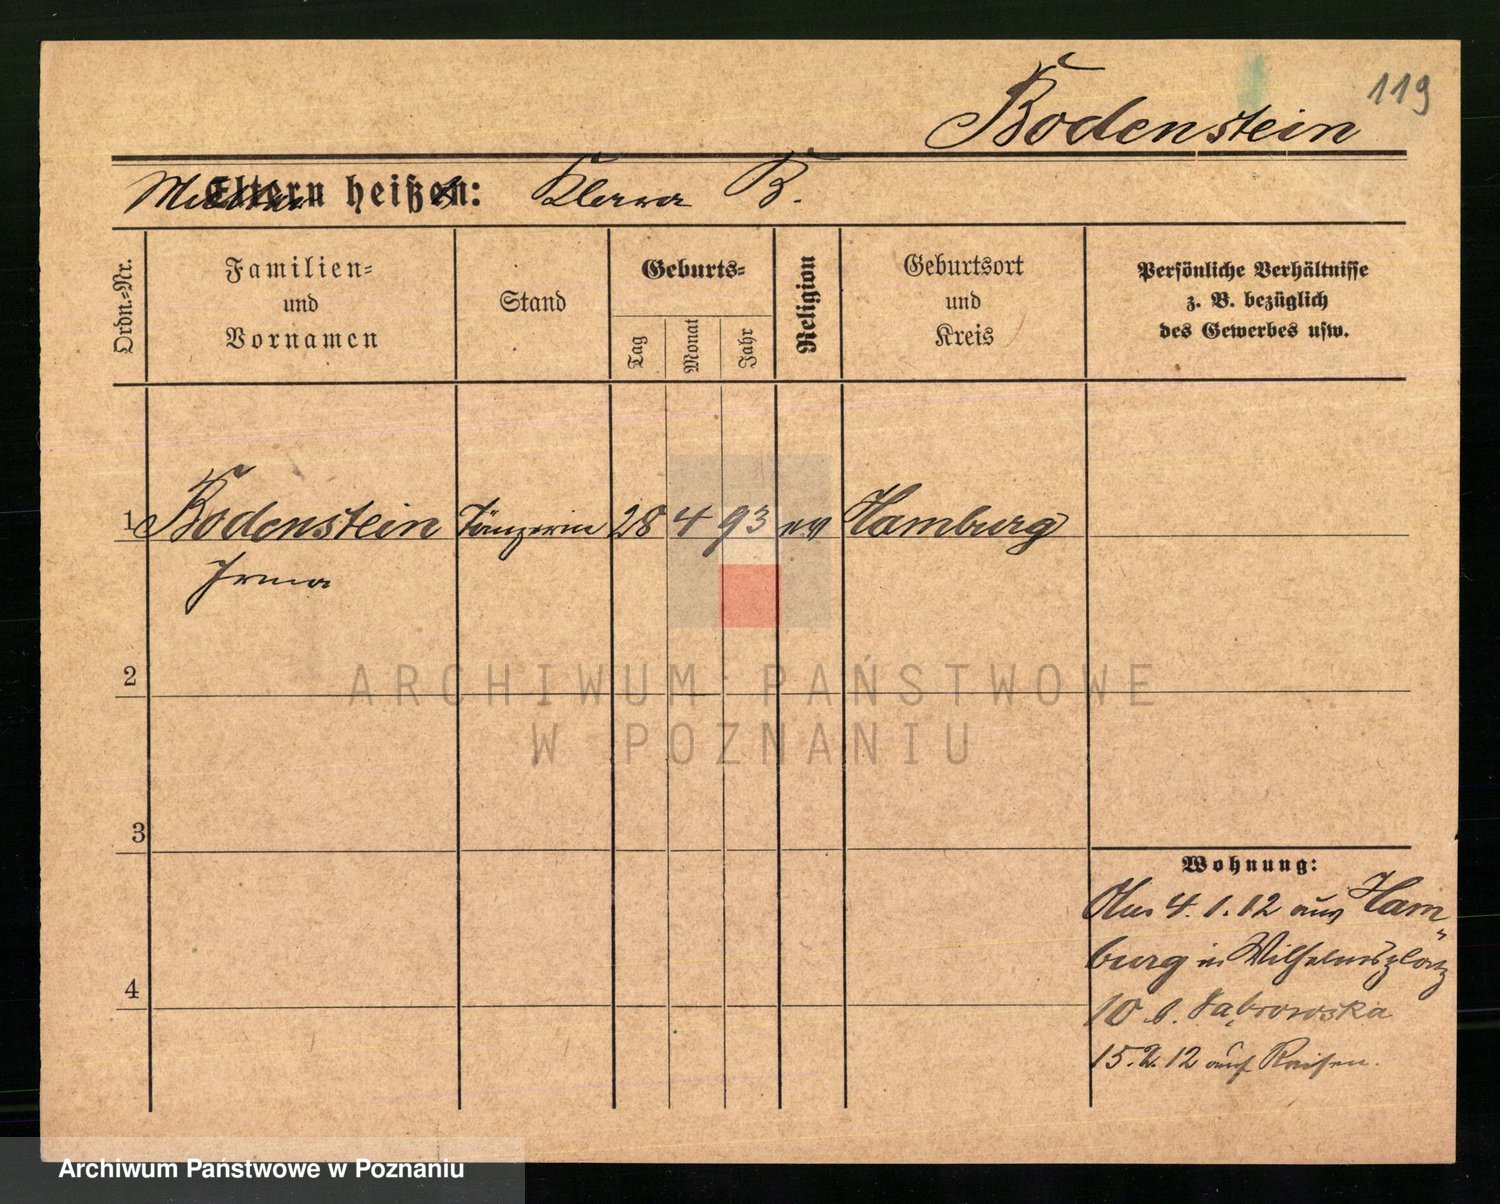 119
Bodenstein
Mutter Eltern heißen: Klara B.
Ordn.-Nr.
Familien-
und
Vornamen
Stand
Geburts-
Tag
Monat
Jahr
Religion
Geburtsort
und
Kreis
Persönliche Verhältnisse
z. B. bezüglich
des Gewerbes usw.
1 Bodenstein Tänzerin 28 4 93 ev Hamburg
Irma
2
ARCHIWUM PAŃSTWOWE
W POZNANIU
3
Wohnung:
4. 1. 12 aus Ham-
burg in Wilhelmsplatz
10 b. Dąbrowska
15. 2. 12 auf Reisen.
4
Archiwum Państwowe w Poznaniu